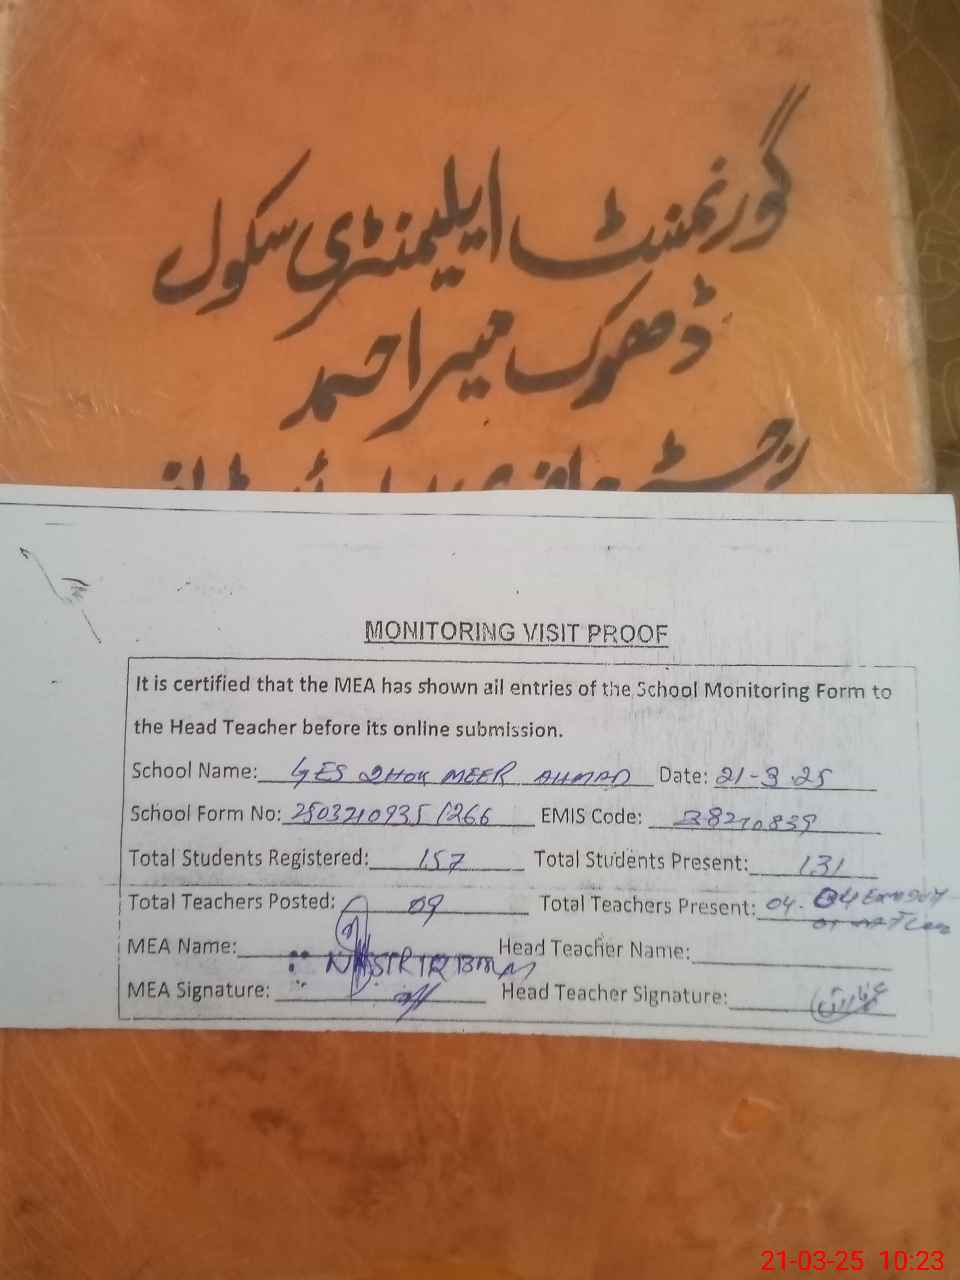 گورنمنٹ ایلیمنٹری سکول
ڈھوک میر احمد
رجسٹر
MONITORING VISIT PROOF
It is certified that the MEA has shown all entries of the School Monitoring Form to
the Head Teacher before its online submission.
School Name: GES DHOK MEER AHMAD Date: 21-3-25
School Form No: 2503210935/266 EMIS Code: 38210839
Total Students Registered: 157 Total Students Present: 131
Total Teachers Posted: 09 Total Teachers Present: 04. 04 Exam Duty
MEA Name: Head Teacher Name:
MEA Signature: Head Teacher Signature:
21-03-25 10:23